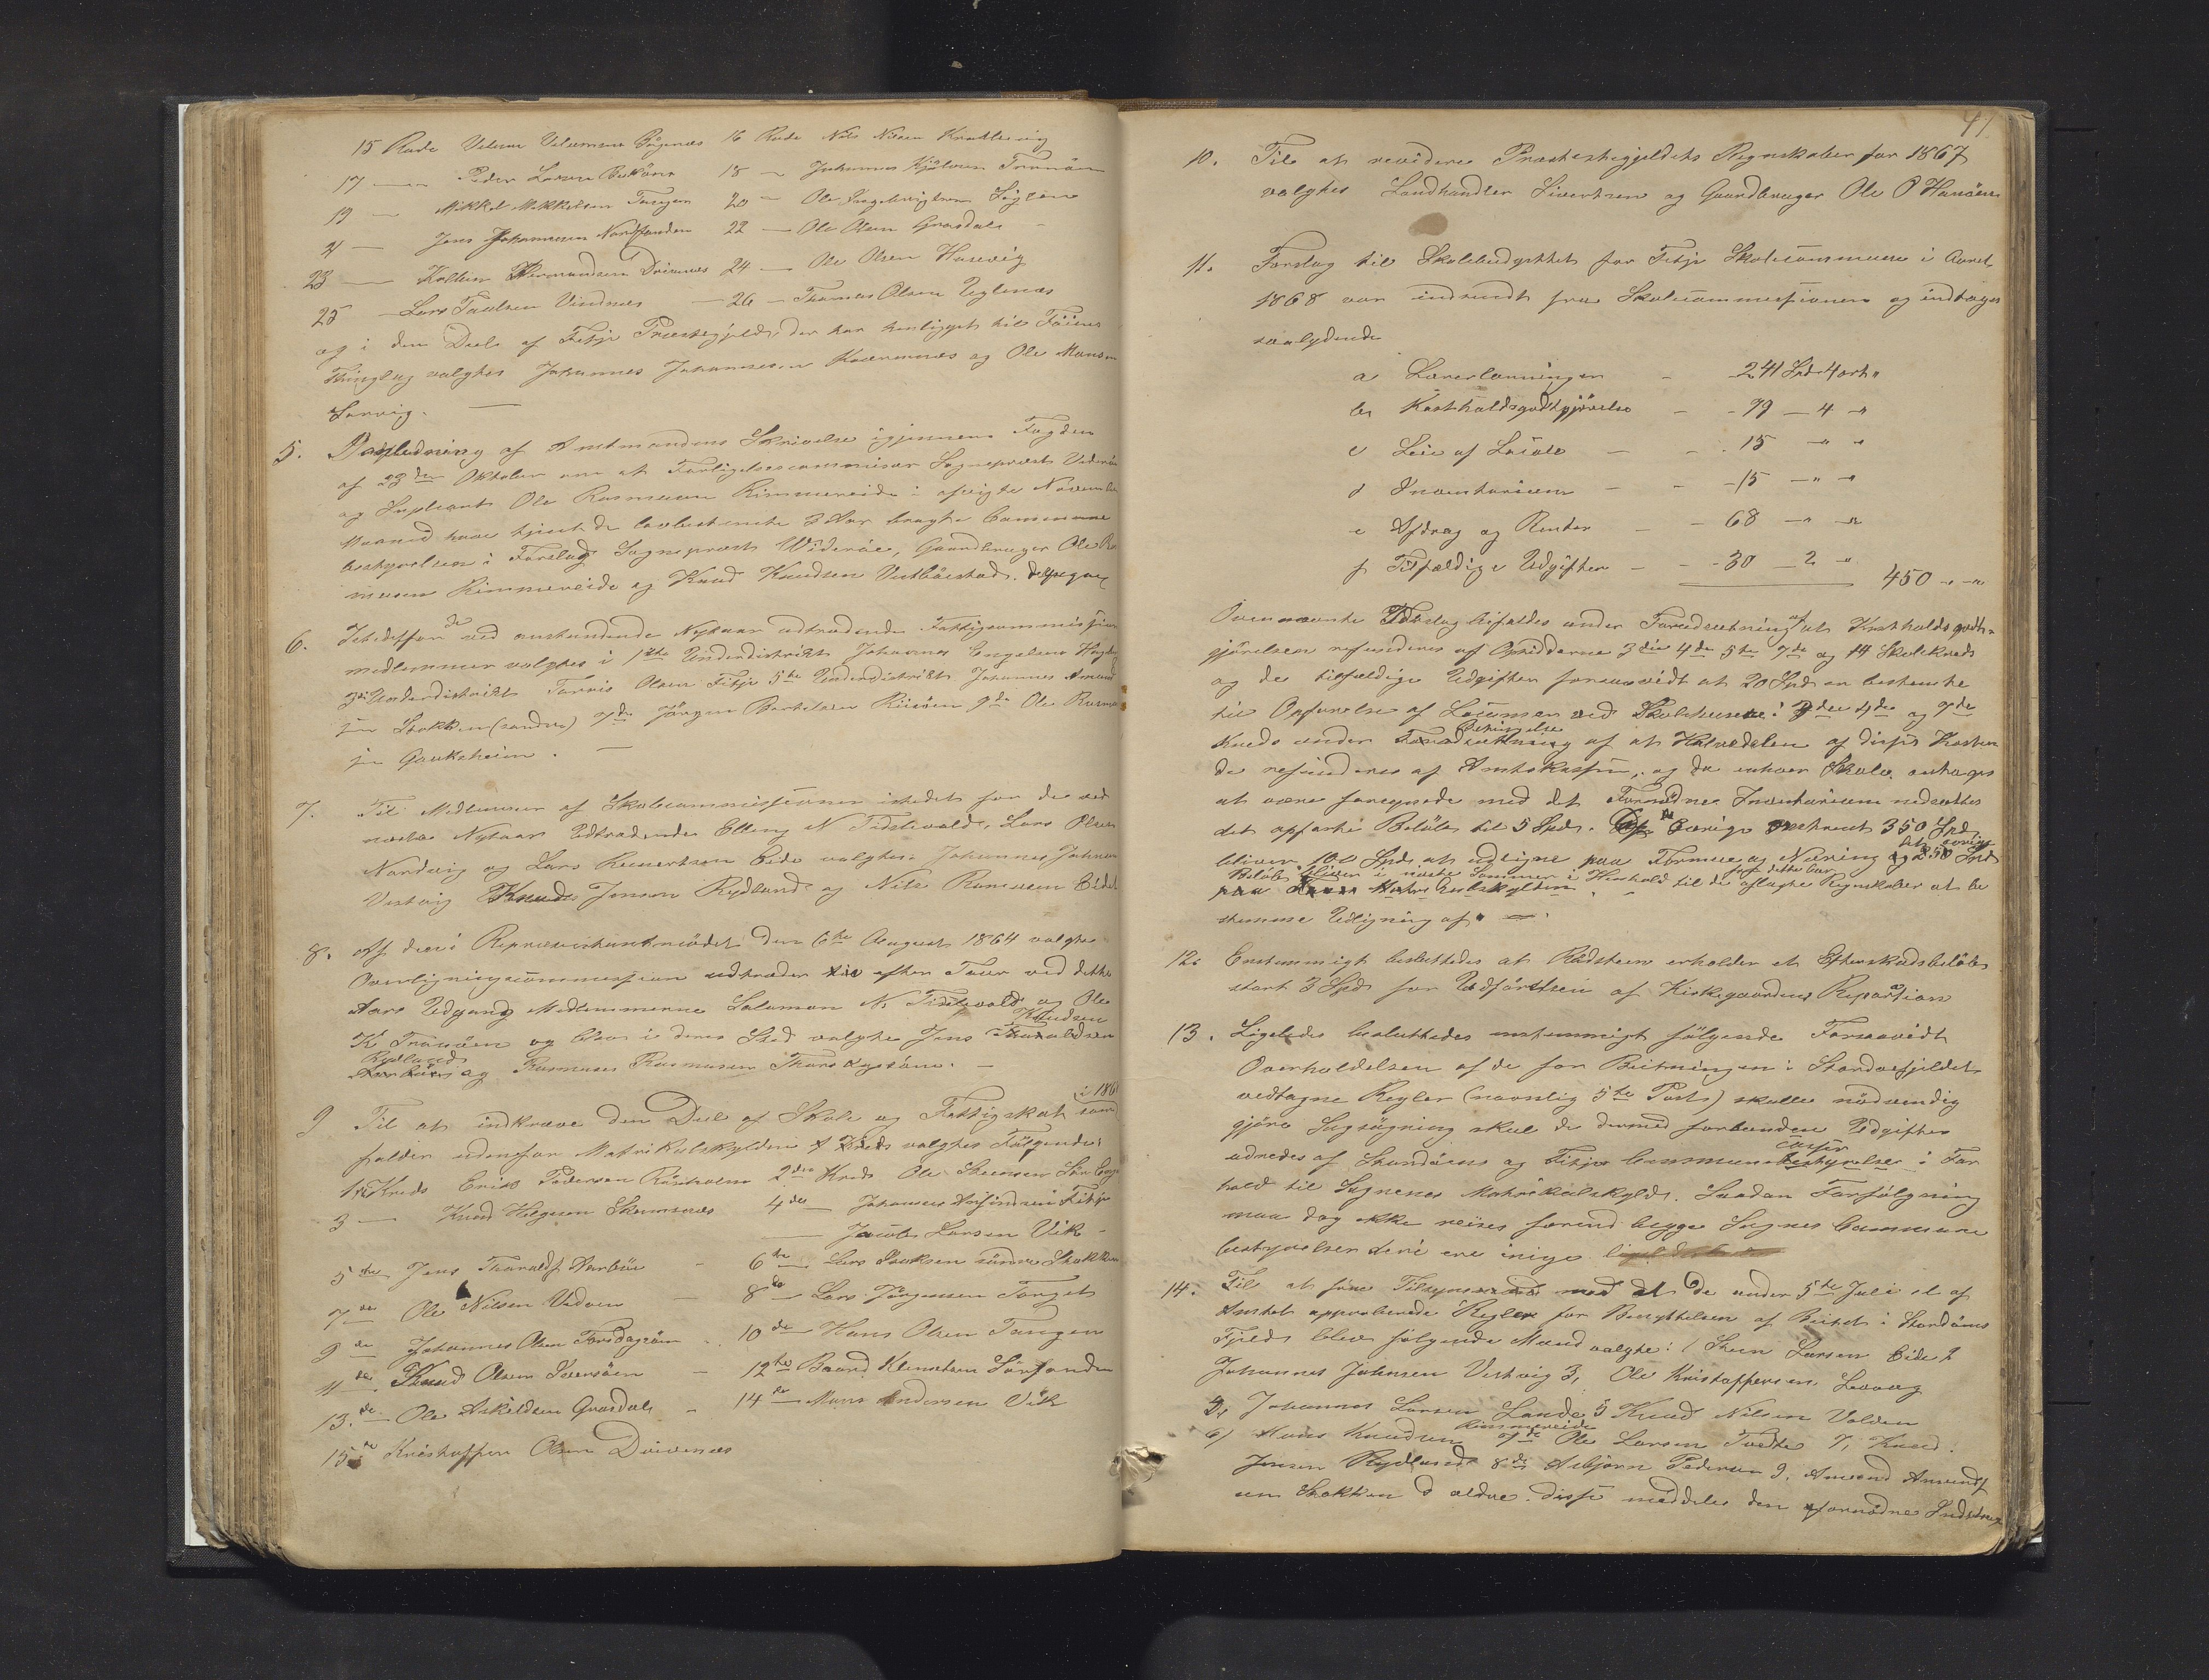 15 Rode Villum Villumsen Vaagenes 16 Rode Nils Nilsen Kraatlevig
17 — Peder Larsen Bukøen 18 — Johannes Kjølsen Tranøen
19 — Mikkel Mikkelsen Tangen 20 — Ole Ingebrigtsen Siglen
21 — Jens Johannesen Nordfonden 22 — Ole Olsen Grovdale
23 — Kolbein Hermundsen Drivenes 24 — Ole Olsen Husevig
25 — Lars Paulsen Vindnes — 26 — Thomas Olsen Uglenæs
og i den Deel af Fitje Præstegjeld, der har henligget til Føiens
Thinglag valgtes Johannes Johannesen Koarennes og Ole Monsen
Sørvig. —
5. I Anledning af Amtmandens Skrivelse igjennem Fogden
af 23de Oktober om at Forligelsescommissær Sognepræst Viderøe
og Supleant Ole Rasmusen Rimmereide i afvigte November
Maaned have tjent de lovbestemte 3 Aar bragte Commune
bestyrelsen i Forslag Sognepræst Widerøe, Gaardbruger Ole Ras
musen Rimmereide og Knud Knudsen Vestbøestad.
6. Istedetfor de ved anstundende Nytaar udtrædende Fattigcommissions
medlemmer valgtes i 1ste Underdistrikt Johannes Engelsen
3die Underdistrikt Tarvis Olsen Fitje 5te Underdistrikt Johannes Amund
sen Stokken (søndre) 7de Jørgen Bertelsen 9de Ole Rasmu
sen Gaukeheim. —
7. Til Medlemmer af Skolecommissionen istedet for de ved
næste Nytaar Udtrædende Elling N Tislevold, Lars Olsen
Nordvig og Lars Eide valgtes: Johannes Johnsen
Vestvig Knud Jensen Rydland og Nils Rasmusen Eide
8. Af den i Repræsentantmødet den 6te August 1864 valgte
Overligningscommission udtræder efter Tour ved dette
Aars Udgang Medlemmerne Salamon N. Tislevold og Ole
K. Tranøen og blev i deres Sted valgte Jens Knudsen
Rydland og Rasmus Rasmusen —
9 Til at indkræve den Deel af Skole og Fattigskat i 186 som
falder udenfor Matrikulskylden valgtes Følgende:
1ste Kreds Erik Pedersen Røixholm 2den Kreds Ole Steensen
3 — Knud Helgesen Skumsnæs 4de — Johannes Fitje
— Jacob Larsen Vik —
5te Jens Tharalds. Aarbøe — 6te — Lars søndre Stokken
7de Ole Nilsen Vedøen — 8de — Lars Jørgensen Torget
9de Johannes Olsen Torsdagsøen — 10de — Hans Olsen Tangen
11de Knud Olsen Iversøen — 12te Baard Klemetsen Sørfonden
13de — Ole Askildsen Grovdale — 14de — Mons Andersen Vik
15de Kristoffer Olsen Drivenes
41
10. Til at revidere Præstestegjeldets Regnskaber for 1867
valgtes Landhandler Sivertsen og Gaardbruger Ole O Hanøen
11. Forslag til Skolebudgettet for Fitje Skolecommune i Aaret
1868 var indsendt fra Skolecommissionen og indtages
saalydende
a Lærerlønninger — 241 Spd 4 ort "
b Kostholdsgodtgjørelse — - 79 — 4 — "
c Leie af Locale — - 15 — " "
d Inventarium — - 15 — " — "
e Afdrag og Renter — - 68 — " — "
f Tilfældige Udgifter — - 30 — 2 — " 450 — " — "
Ovennævnte Forslag bifaldes under Forudsætning af at Kostholdsgodt-
gjørelsen refunderes af Opsidderne 3die 4de 5te 7de og 14 Skolekreds
og de tilfældige Udgifter forsaavidt at 20 Spd er bestemte
til Opførelse af ved Skolehusene i 3die 4de og 7de
Kreds under Betingelse af at Halvdelen af disse Koster
de refunderes af Amtskassen, og da enhver Skole antages
at være forsynede med det Fornødne Inventarium nedsættes
det opførte Beløb til 5 Spd. De øvrige 350 Spd
bliver 100 Spd at udligne paa Formue og Næring og 250 Spd det øvrige
Beløb bliver i næste Sommer i Henhold til de for dette Aar aflagte Regnskaber at be
stemme Udligning af. —
12. Enstemmigt besluttedes at Rødsteen erholder et Efterskudsbeløb
stort 3 Spd for Udførelsen af Kirkegaardens Reparation
13. Ligeledes besluttedes enstemmigt følgende Forsaavidt
Overholdelsen af de for Beitningen i Stordøefjeldet
vedtagne Regler (navnlig 5te Post) skulle nødvendig
gjøre Sagsøgning skal de dermed forbundne Udgifter
udredes af Stordøens og Fitje Communes Casser i For
hold til Sognenes Matrikulskyld. Saadan Forfølgning
maa dog ikke reises førend begge Sognes Commune
bestyrelser deri ere enige
14. Til at føre Tilsyn med at de under 5te Juli d. af
Amtet approberede Regler for Benyttelsen af Beitet i Stordøens
Fjeld blev følgende Mænd valgte: 1 Steen Larsen Eide 2
Johannes Johnsen Vestvig 3, Ole Kristoffersen Levaag
4, Johannes Larsen Lande 5 Knud Nilsen Valden
6, Mons Knudsen Rimmereide 7de Ole Larsen Tvedte 7, Knud
Jensen Rydland 8de Asbjørn Pedersen 9, Amund Amunds
sen Stokken d ældre. Disse meddeles den fornødne Instrux